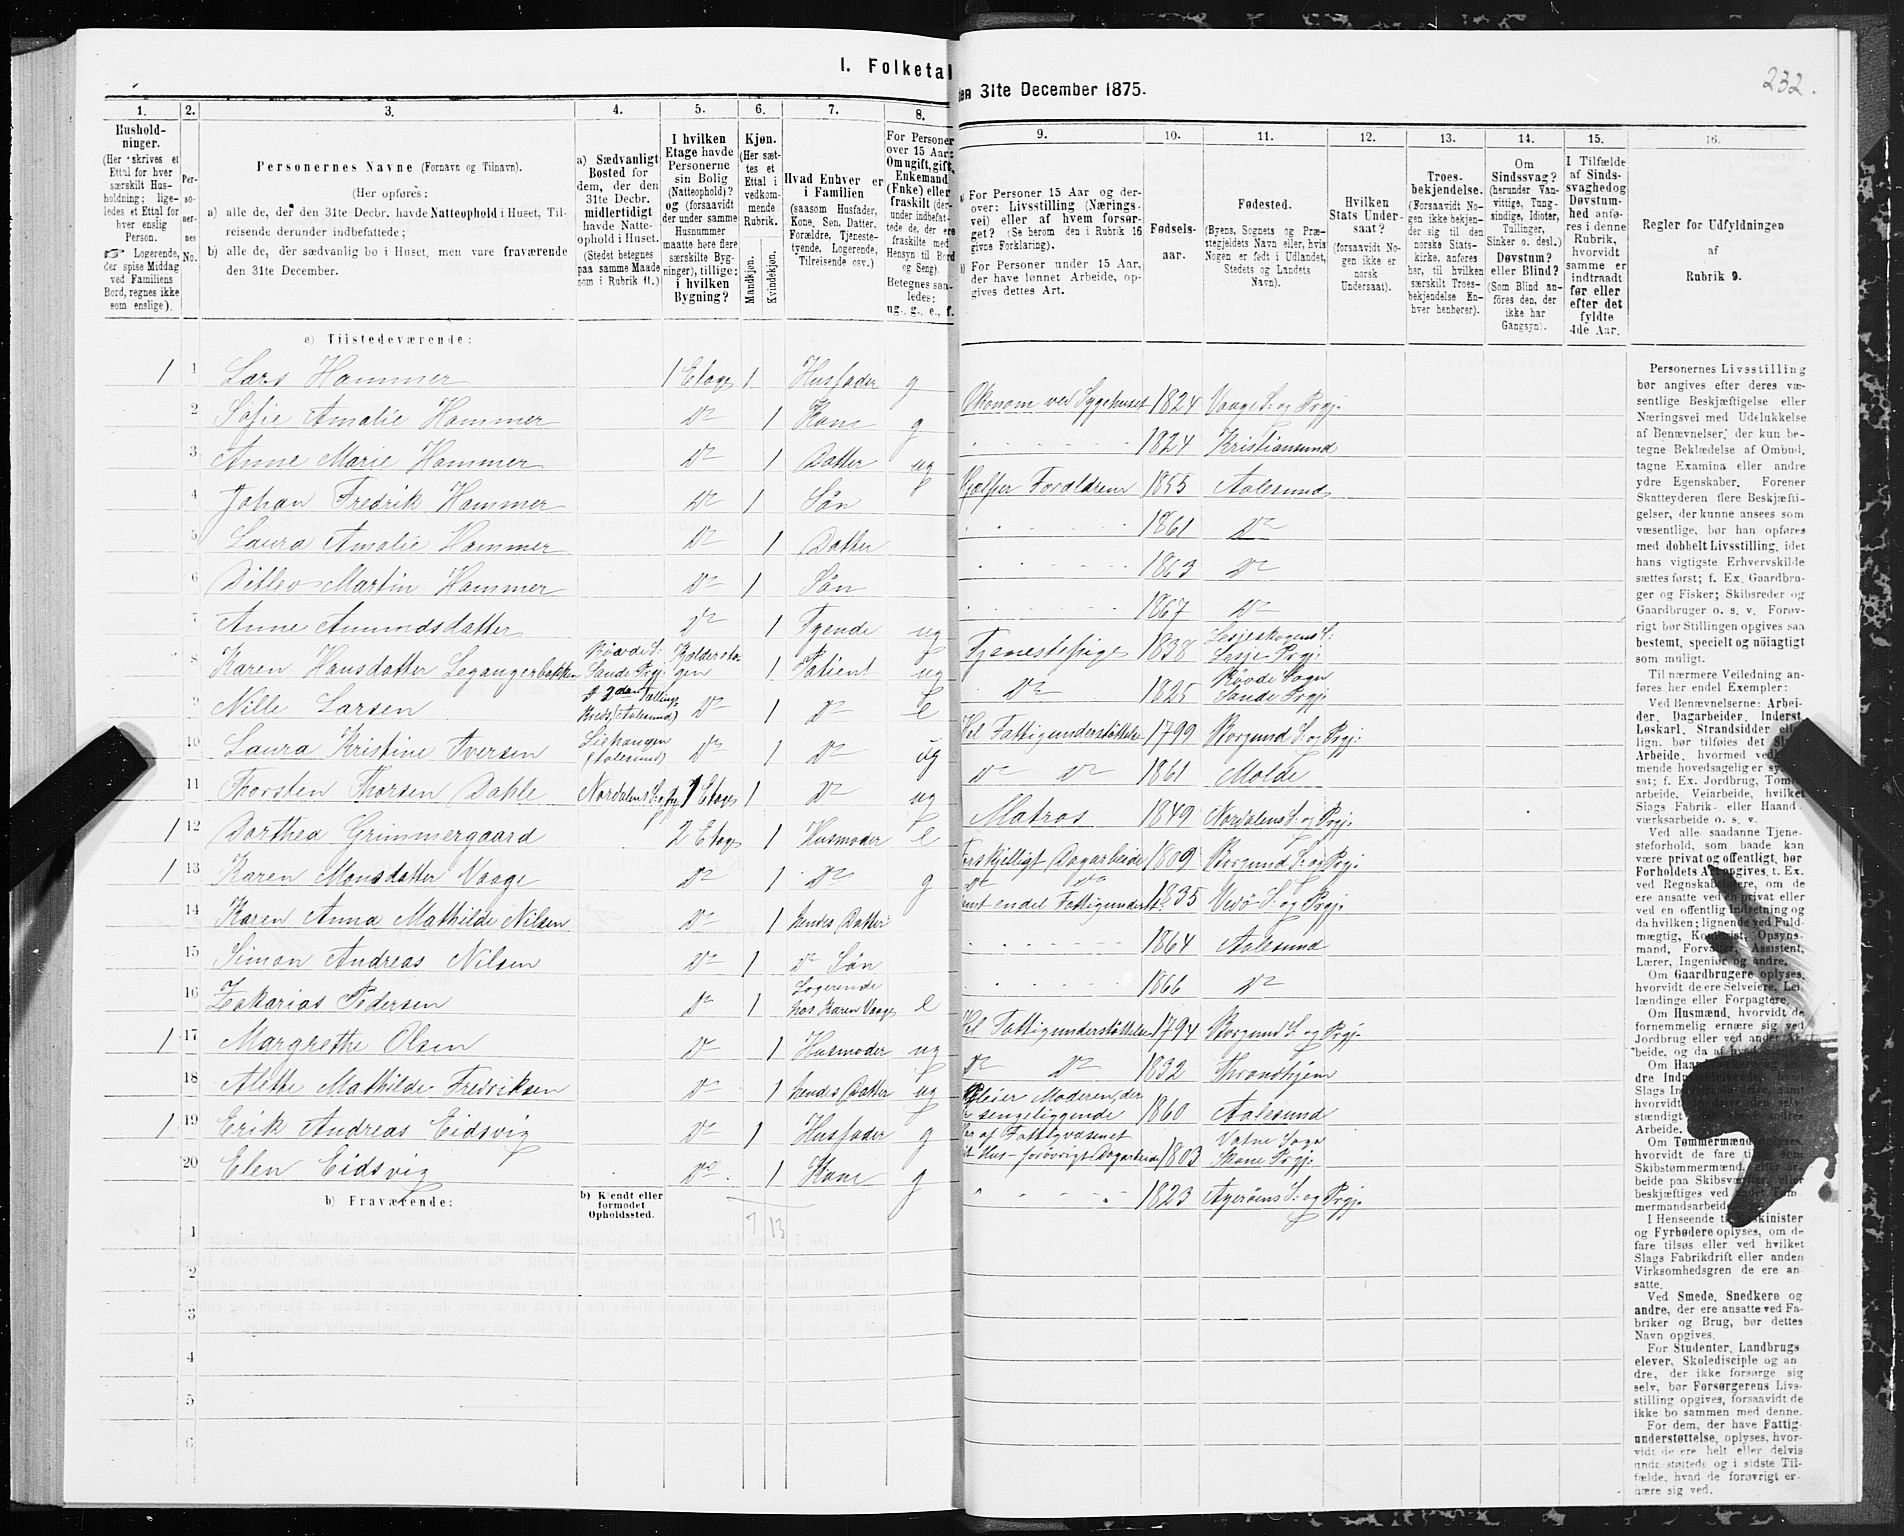 I. Folketal
den 31te December 1875.
232.
1.
Hushold-
ninger.
(Her skrives et
Ettal for hver
særskilt Hus-
holdning; lige-
ledes et Ettal for
hver enslig
Person.
☞ Logerende,
der spise Middag
ved Familiens
Bord, regnes ikke
som enslige).
2.
Per-
so-
ner-
nes
No.
3.
Personernes Navne (Fornavn og Tilnavn).
(Her opføres:
a) alle de, der den 31te Decbr. havde Natteophold i Huset, Til-
reisende derunder indbefattede;
b) alle de, der sædvanlig bo i Huset, men vare fraværende
den 31te December.
4.
a) Sædvanligt
Bosted for
dem, der den
31te Decbr.
midlertidigt
havde Natte-
ophold i Huset.
(Stedet betegnes
paa samme Maade
som i Rubrik 11.)
5.
I hvilken
Etage havde
Personerne
sin Bolig
(Natteophold)?
og (forsaavidt
der under samme
Husnummer
maatte høre flere
særskilte Byg-
ninger), tillige:
i hvilken
Bygning?
6.
Kjøn.
(Her sæt-
tes et
Ettal i
vedkom-
mende
Rubrik.
Mandkjøn.
Kvindekjøn.
7.
Hvad Enhver er
i Familien
(saasom Husfader,
Kone, Søn, Datter,
Forældre, Tjeneste-
tyende, Logerende,
Tilreisende osv.)
8.
For Personer
over 15 Aar:
Om ugift, gift,
Enkemand
(Enke) eller
fraskilt (der-
under indbefat-
tede de, der ere
fraskilte med
Hensyn til Bord
og Seng).
Betegnes saa-
ledes:
ug., g., e., f.
9.
a) For Personer 15 Aar og der-
over: Livsstilling (Nærings-
vei) eller af hvem forsør-
get? (Se herom den i Rubrik 16
givne Forklaring).
b) For Personer under 15 Aar,
der have lønnet Arbeide, op-
gives dettes Art.
10.
Fødsels-
aar.
11.
Fødested.
(Byens, Sognets og Præ-
stegjeldets Navn eller, hvis
Nogen er født i Udlandet,
Stedets og Landets
Navn).
12.
Hvilken
Stats Under-
saat?
(forsaavidt No-
gen ikke er
norsk
Undersaat).
13.
Troes-
bekjendelse.
(Forsaavidt No-
gen ikke bekjen-
der sig til den
norske Stats-
kirke, anføres
her, til hvilken
særskilt Troes-
bekjendelse En-
hver henhører).
14.
Om
Sindssvag?
(herunder Van-
vittige, Tung-
sindige, Idioter,
Tullinger,
Sinker o. desl.)
Døvstum?
eller Blind?
(Som Blind an-
føres den, der
ikke har
Gangsyn).
15.
I Tilfælde
af Sinds-
svaghed og
Døvstum-
hed anfø-
res i denne
Rubrik,
hvorvidt
samme er
indtraadt
før eller
efter det
fyldte
4de Aar.
16.
Regler for Udfyldningen
af
Rubrik 9.
a) Tilstedeværende:
1 1 Lars Hammer 1 Etage 1 Husfader g Økonom ved Sygehuset 1824 Vaage S: og Prgj.
2 Sofie Amalie Hammer Do 1 Kone g 1824 Kristiansund
3 Anne Marie Hammer Do 1 Datter ug Hjælper Forældrene 1855 Aalesund
4 Johan Fredrik Hammer Do 1 Søn 1861 Do
5 Laura Amalie Hammer Do 1 Datter 1863 Do
6 Ditlev Martin Hammer Do 1 Søn 1867 Do
7 Anne Amundsdatter Do 1 Tyende ug Tjenestepige 1838 Lesjeskogens S: Lesje Prgj.
8 Karen Hansdatter Legangerbakken Røvde S: Sande Prgj. Kjelderetagen 1 Patient ug Do 1825 Røvde Sogn Sande Prgj.
9 Nille Larsen Kreds (Aalesund) Do 1 Do e Hel Fattigunderstøttelse 1799 Borgund S: og Prgj.
10 Laura Kristine Iversen (Aalesund) Do 1 Do ug Do Do 1861 Molde
11 Thorsten Thorsen Dahle Nordalens S: og Prgj. 1 Etage 1 Do ug Matros 1849 Nordalens S: og Prgj.
1 12 Dorthea Grimmergaard 2 Etage 1 Husmoder e Forskjelligt Dagarbeide 1809 Borgund S: og Prgj.
1 13 Karen Monsdatter Vaage Do 1 Do g Do Do samt endel Fattigunderst. 1835 Vedø S: og Prgj.
14 Karen Anna Mathilde Nilsen Do 1 hendes Datter 1864 Aalesund
15 Simon Andreas Nilsen Do 1 Do Søn 1866 Do
16 Zakarias Pedersen Do 1 Logerende hos Karen Vaage e Hel Fattigunderstøttelse 1794 Borgund S: og Prgj.
1 17 Margrethe Olsen Do 1 Husmoder ug Do Do 1832 Throndhjem
18 Alethe Mathilde Fredriksen Do 1 hendes Datter ug Pleier Moderen, der er sengeliggende 1860 Aalesund
1 19 Erik Andreas Eidsvig Do 1 Husfader g Har af Fattigvæsenet Hus- forøvrigt Dagarbeide 1803 Vatne Sogn Prgj.
20 Elen Eidsvig Do 1 Kone g 1823 Agerøens S: og Prgj.
b) Fraværende:
b) Kjendt eller
formodet
Opholdssted.
7 13
1
2
3
4
5
6
Personernes Livsstilling
bør angives efter deres væ-
sentlige Beskjæftigelse eller
Næringsvei med Udelukkelse
af Benævnelser, der kun be-
tegne Beklædelse af Ombud,
tagne Examina eller andre
ydre Egenskaber. Forener
Skatteyderen flere Beskjæfti-
gelser, der kunne ansees som
væsentlige, bør han opføres
med dobbelt Livsstilling, idet
hans vigtigste Erhvervskilde
sættes først; f. Ex. Gaardbru-
ger og Fisker; Skibsreder og
Gaardbruger o. s. v. Forøv-
rigt bør Stillingen opgives saa
bestemt, specielt og nøiagtigt
som muligt.
Til nærmere Veiledning an-
føres her endel Exempler:
Ved Benævnelserne: Arbei-
der, Dagarbeider, Inderst,
Løskarl, Strandsidder eller
lign. bør tilføies det
Arbeide, hvormed
mende hovedsagelig er
sat; f. Ex. Jordbrug, Tom-
arbeide, Veiarbeide, hvilket
Slags Fabrik- eller Haand-
værksarbeide o. s. v.
Ved alle saadanne Tjene-
steforhold, som baade kan
være privat og offentligt, bør
Forholdets Art opgives, f. Ex.
ved Regnskabsførere, om de
ere ansatte ved en privat eller
ved en offentlig Indretning og
da hvilken; lignende ved Fuld-
mægtig, Kontorist, Opsyns-
mand, Forvalter, Assistent,
Lærer, Ingeniør og andre.
Om Gaardbrugere oplyses,
hvorvidt de ere Selveiere, Lei-
lændinge eller Forpagtere.
Om Husmænd, hvorvidt de
fornemmelig ernære sig ved
Jordbrug eller ved andet Ar-
beide, og da af
Om
dre
Slags
hvorvidt
stændigt
Arbeide.
Om Tømmermænd oplyses,
hvorvidt de fare
Skibstømmermænd,
beide paa
beskjæftiges ved
mermandsarbeide
I Henseende til Maskinister
og Fyrbødere oplyses, om de
fare tilsøs eller ved hvilket
Slags Fabrikdrift eller anden
Virksomhedsgren de ere an-
satte.
Ved Smede, Snedkere og
andre, der ere ansatte ved Fa-
briker og Brug, bør dettes
Navn opgives.
For Studenter, Landbrugs-
elever, Skoledisciple og an-
dre, der ikke forsørge sig
selv, bør Forsørgerens Livs-
stilling opgives, forsaavidt de
ikke bo sammen med denne.
For dem, der have Fattig-
understøttelse, oplyses, hvor-
vidt de ere helt eller delvis
understøttede og i sidste Til-
fælde, hvad de forøvrigt er-
nære sig ved.